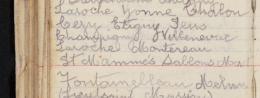 Laroche Yonne Châlon
Cezy Etigny Sens
Champigny Villeneuve
Laroche Montereau
St Mammès Sablons Mor
Fontainebleau Melun